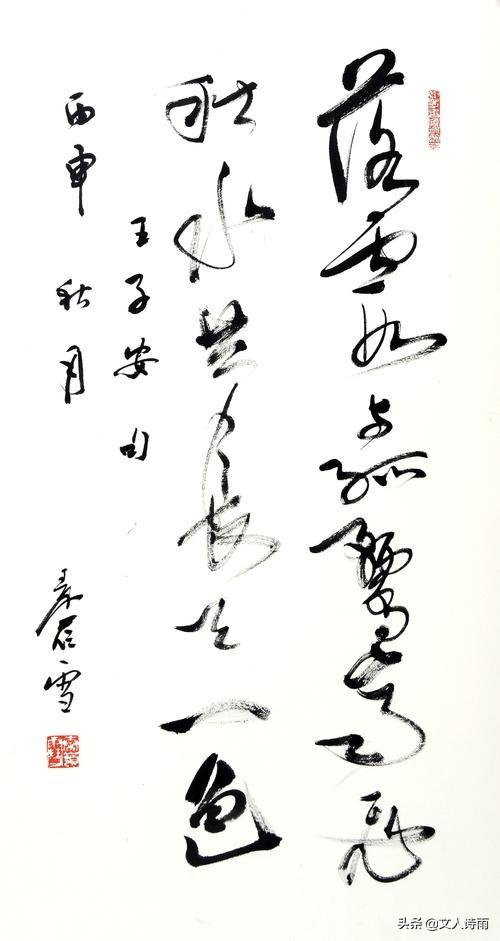 落霞与孤鶩齊飛
秋水共長天一色
王子安句
丙申 秋月
秦岭雪
头条 @文人诗雨